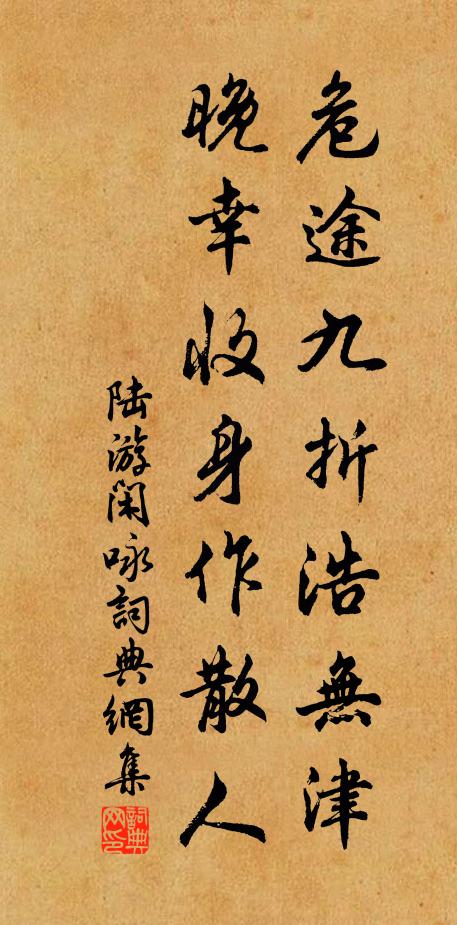 危途九折浩無津
晚幸收身作散人
陆游闲咏詞典網集
詞典网印